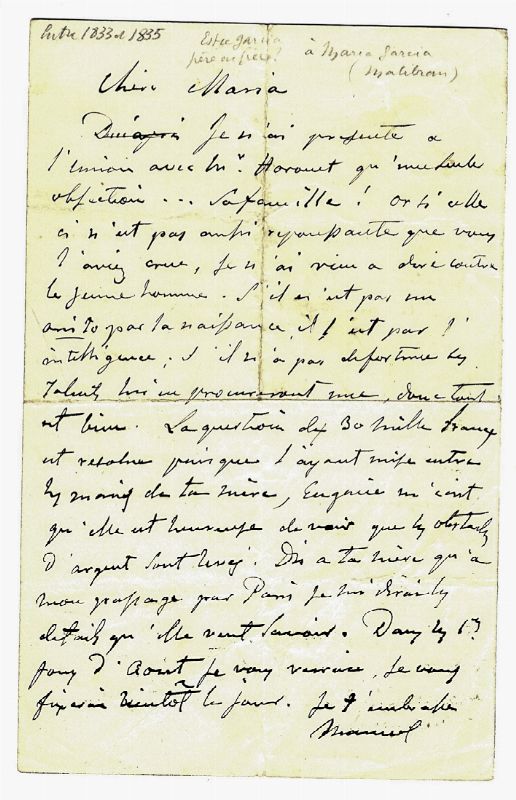 Entre 1833 et 1835
Est ce Garcia
père ou fils?
à Maria Garcia
(Malibran)
Chère Maria
Je n'ai presente a
l'union avec Mr. qu'une seule
objection ... sa famille! Or si celle
ci n'est pas aussi repoussante que vous
l'aviez crue, je n'ai rien a dire contre
le jeune homme. S'il n'est pas un
aristo par la naissance, il l'est par l'
intelligence, s'il n'a pas de fortune les
talents lui en procureront une, donc tout
est bien. La question des 30 mille francs
est resolue puisque l'ayant mise entre
les mains de ta mère, Eugénie m'écrit
qu'elle est heureuse de voir que les obstacles
d'argent sont levés. Dis a ta mère qu'a
mon passage par Paris je lui dirai les
details qu'elle veut savoir. Dans les 1rs
jours d'Aout je vous verrai, je vous
fixerai bientôt le jour. Je t'embrasse
Manuel